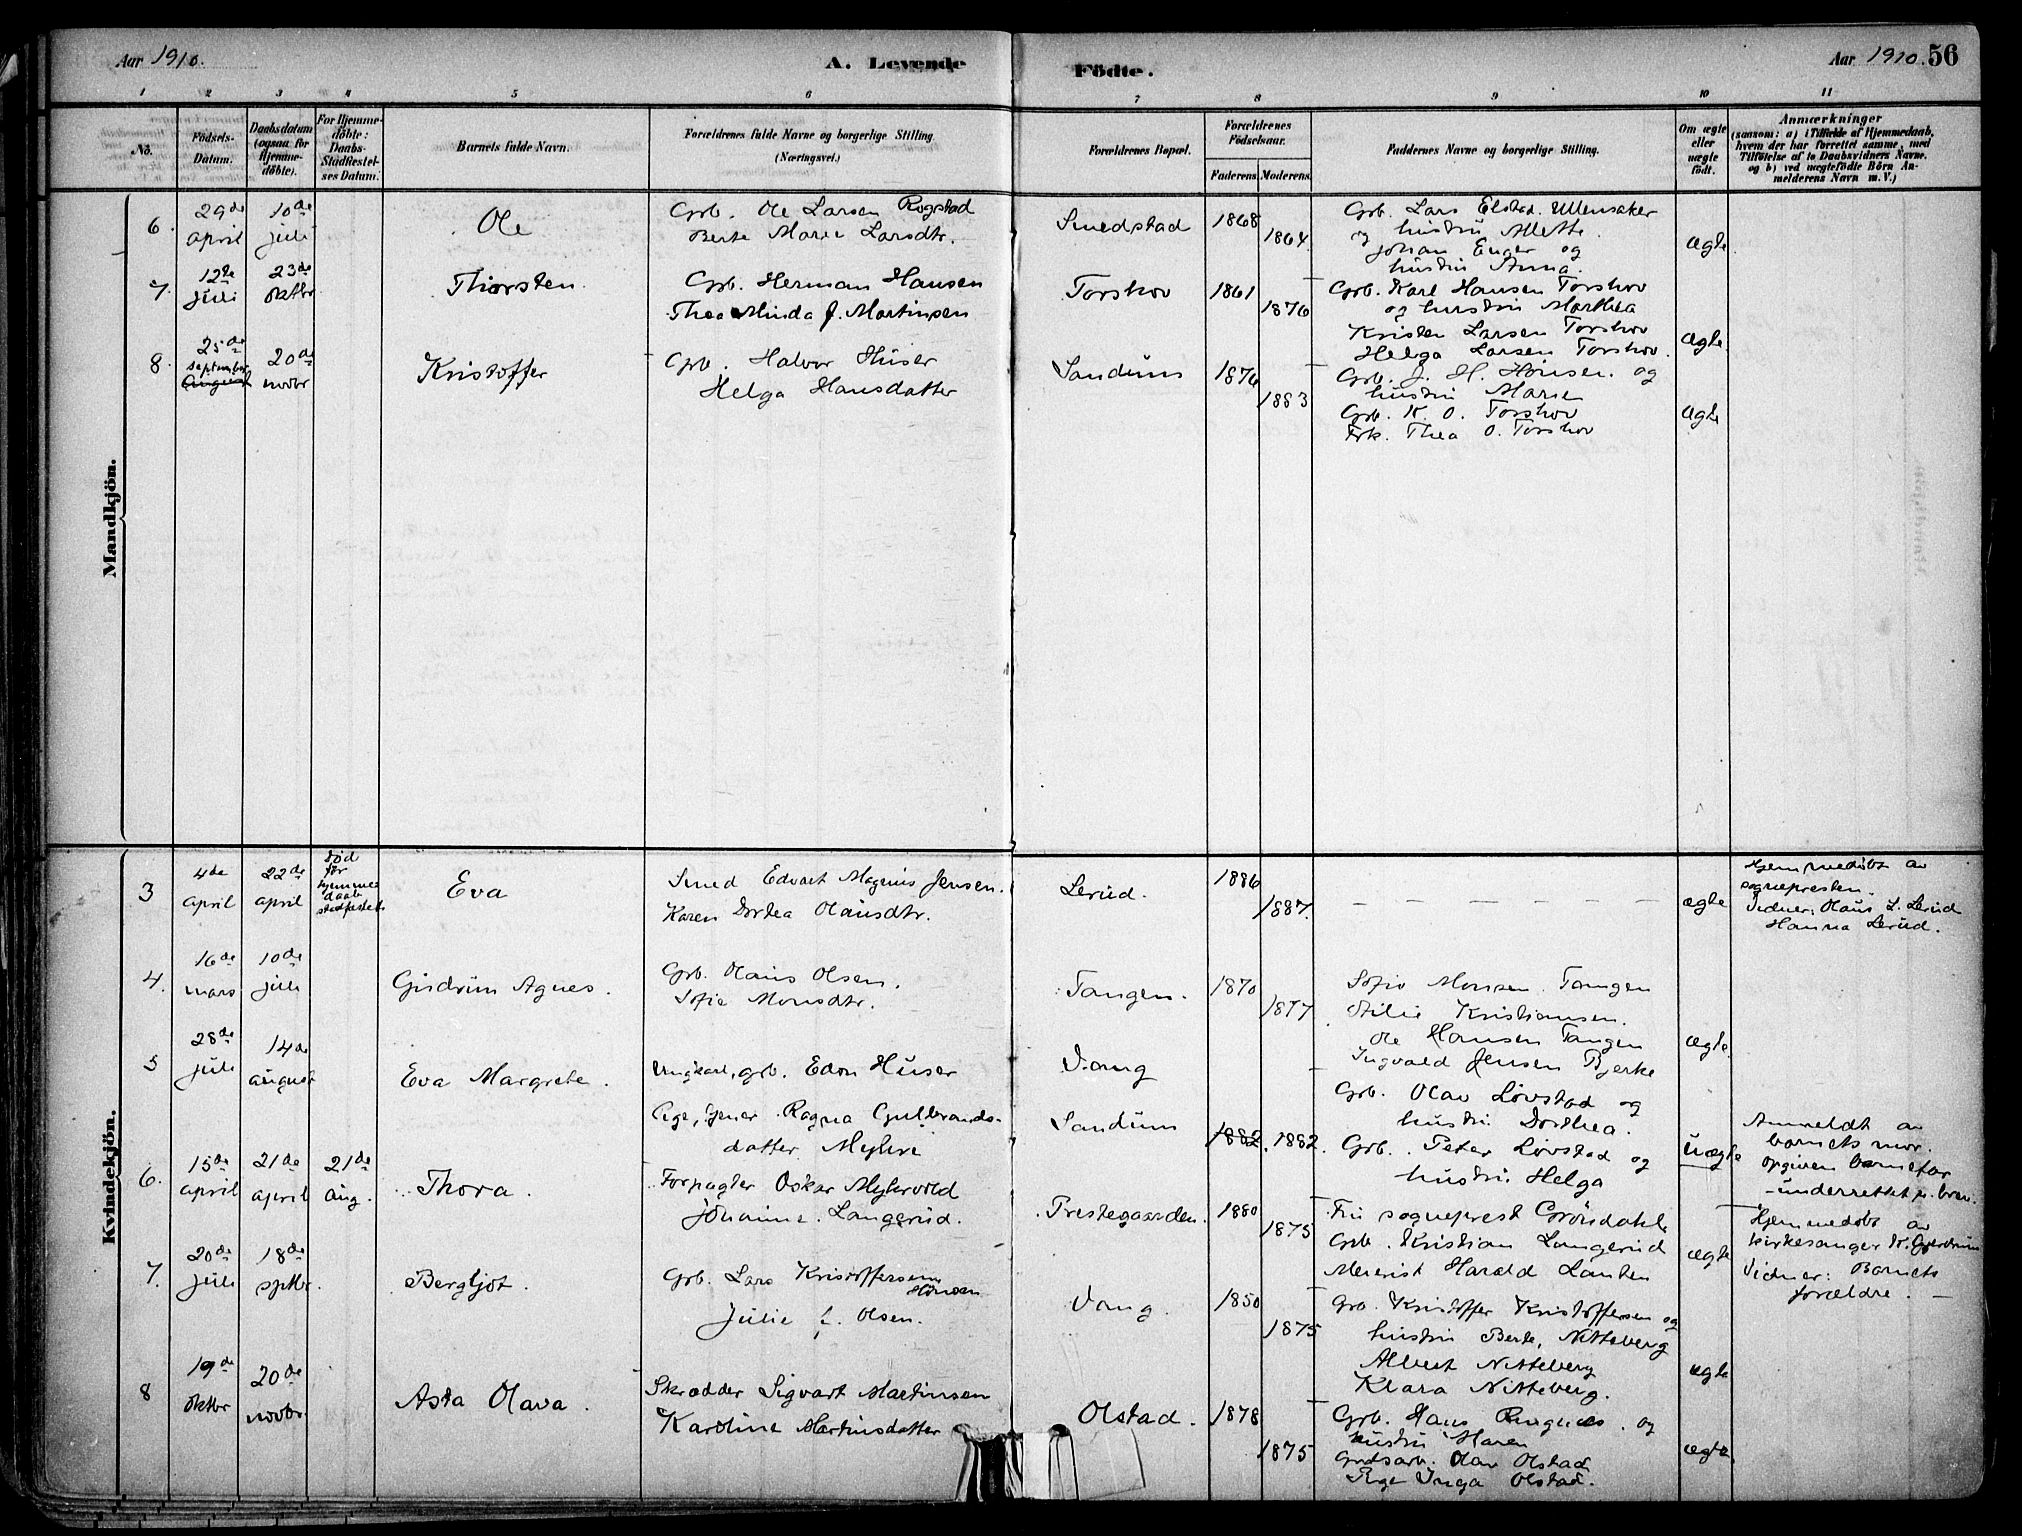 Aar 1910.
A. Levende
Födte.
Aar 1910. 56
1 2 3 4 5 6 7 8 9 10 11
No.
Födsels-
Datum.
Daabsdatum
(ogsaa for
Hjemme-
döbte).
For Hjemme-
döbte:
Daabs-
Stadfæstel-
ses Datum.
Barnets fulde Navn.
Forældrenes fulde Navne og borgerlige Stilling
(Næringsvei.)
Forældrenes Bopæl.
Forældrenes
Födselsaar.
Faderens Moderens
Faddernes Navne og borgerlige Stilling.
Om ægte
eller
uægte
født.
Anmærkninger
(saasom: a) i Tilfælde af Hjemmedaab,
hvem der har forrettet samme, med
Tilføielse af to Daabsvidners Navne.
og b) ved uægtefödte Börn An-
melderens Navn m. V.)
Mandkjön.
6. 29de april
10de juli
Ole
Grb. Ole Larsen Rogstad
Berte Marie Larsdtr.
Smedstad
1868
1864.
Grb. Lars Elstad. Ullensaker
og hustru Alette.
Johan Enger og
hustru Anna.
ægte
7. 12te juli
23de oktbr
Thorsten.
Grb. Herman Hansen
Thea Minda f. Martinsen
Torshov
1861
1876
Grb. Karl Hansen Torshov
og hustru Marthea
Kristen Larsen Torshov
Helga Larsen Torshov.
ægte.
8. 25de september
august
20de novbr
Kristoffer
Grb. Halvor Huser
Helga Hansdatter
Sandum
1876
1883
Grb. J. H. Hønsen. og
hustru Maren
Grb. K. O. Torshov
Frk. Thea O. Torshov
ægte
Kvindekjön.
3 4de april
22de april
død
før
hjemme
daab
stadfestet
Eva
Smed Edvart Magnus Jensen.
Karen Dortea Olausdtr.
Lerud.
1886
1887.
ægte
Hjemmedøbt av
sognepresten.
Vidner: Olaus L. Lerud
Hanna Lerud.
4. 16de mars
10de juli
Gudrun Agnes.
Grb. Olaus Olsen.
Sofie Monsdtr.
Tangen.
1870
1877
Sofie Monsen. Tangen
Stilie Kristiansen.
Ole Hansen Tangen
Ingvald Jensen Bjerke
ægte.
5 28de juli
14de august
Eva Margrete.
Ungkarl, grb. Edon Huser
Pige, tjener. Ragna Gulbrands-
datter Myhre
Vang
Sandum
1882 . 1882.
Grb. Olav Løvstad og
hustru Dorthea.
Grb. Peter Løvstad og
hustru Helga
uægte
Anmeldt av
barnets mor.
opgiven barnefar
underrettet pr. brev.
6. 15de april
21de april
21de aug.
Thora.
Forpagter Oskar Myhrvold
Johanne Langerud.
Prestegaarden.
1880
1875
Fru sogneprest Grøndahl
Grb. Kristian Langerud
Meierist Harald Lunten
ægte
Hjemmedøbt av
kirkesanger K. Gjerdrum
Vidner: Barnets
forældre.
7. 20de juli
18de sptbr.
Bergljot.
Grb. Lars Kristoffersen
Hønsen
Julie f. Olsen.
Vang.
1850
1875
Grb. Kristoffer Kristoffersen og
hustru Berte, Nitteberg
Albert Nitteberg
Klara Nitteberg.
ægte
8 19de oktbr
20de novbr.
Asta Olava.
Skrædder Sigvart Martinsen
Karoline Martinsdatter
Olstad.
1878
1875
Grb. Hans Ringnes og
hustru Maren
Grdsarb. Olav Olstad
Pige Inga Olstad.
ægte.